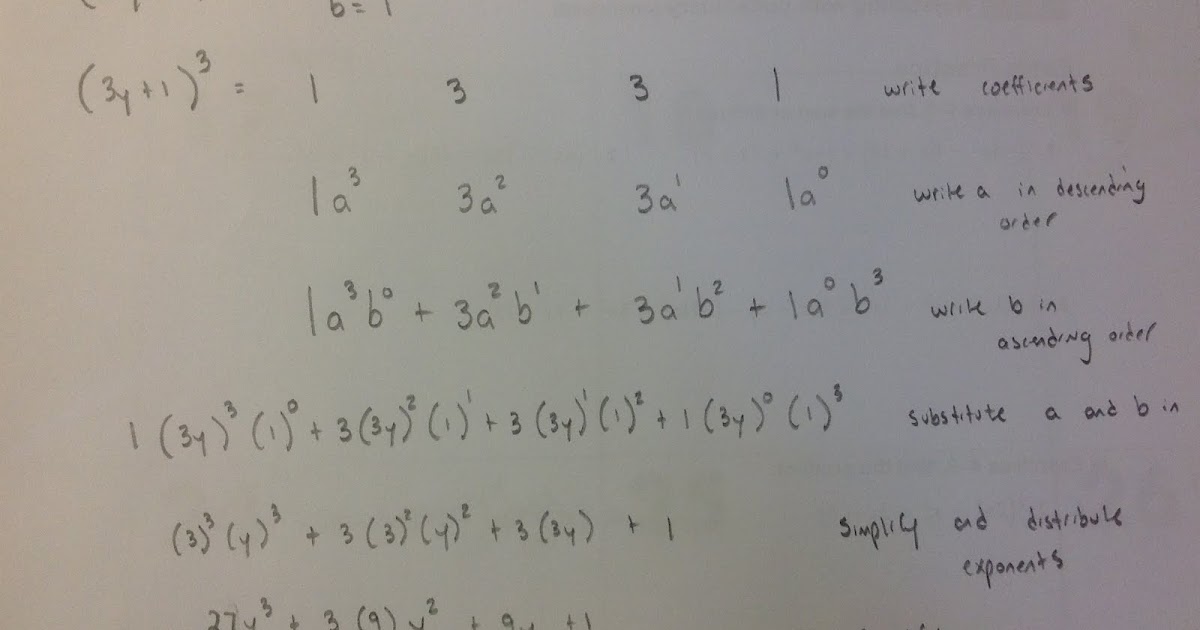 b = 1
(3y+1)³ = 1 3 3 1 write coefficients
1a³ 3a² 3a¹ 1a⁰ write a in descending
order
1a³b⁰ + 3a²b¹ + 3a¹b² + 1a⁰b³ write b in
ascending order
1(3y)³(1)⁰ + 3(3y)²(1)¹ + 3(3y)¹(1)² + 1(3y)⁰(1)³ substitute a and b in
(3)³(y)³ + 3(3)²(y)² + 3(3y) + 1 simplify and distribute
exponents
27y³ + 3(9)y² + 9y + 1